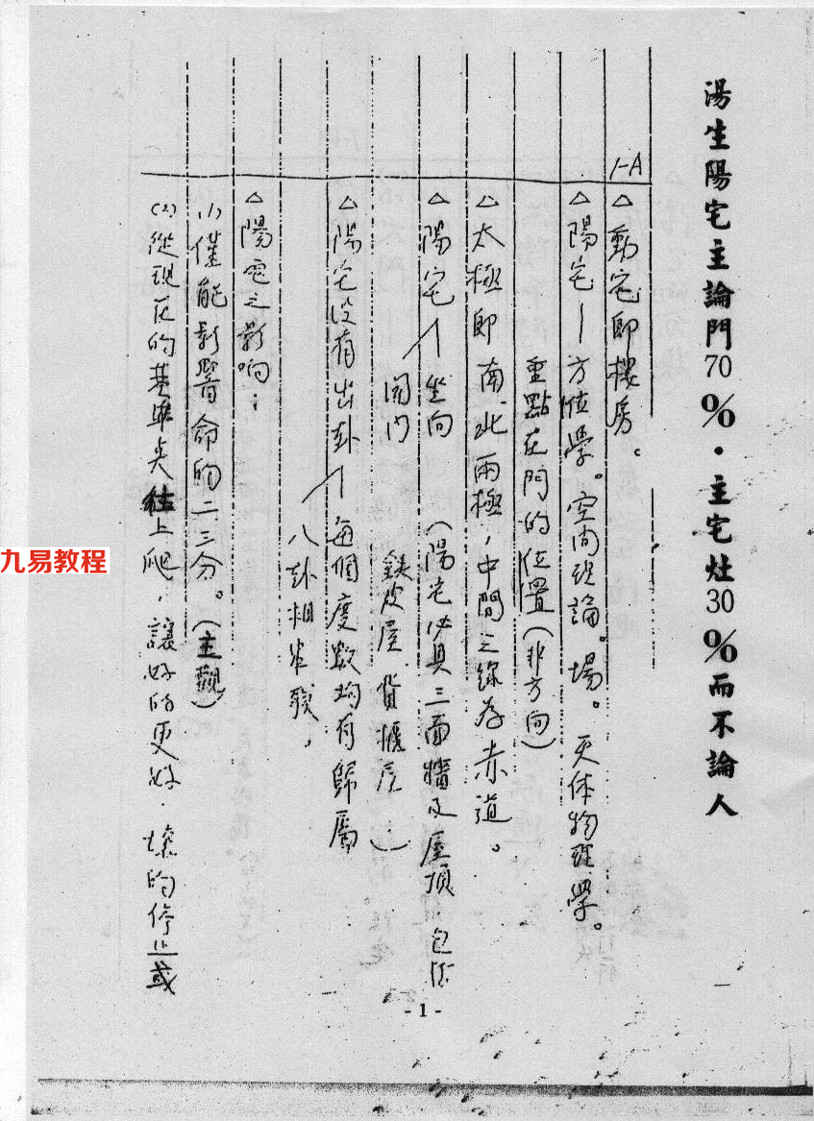 湯生陽宅主論門70%·主宅灶30%而不論人
1-A
△動宅即樓房。
△陽宅—方位學。空间理論。場。天体物理學。
重點在門的位置(非方向)
△太極即南、北兩極,中間之線為赤道。
△陽宅 坐向 (陽宅必具三面牆及屋頂 包括
開门 鐵皮屋 貨櫃屋)
△陽宅没有出卦 每個度數均有歸屬
八卦相
△陽宅之影响:
(1)僅能影響命的二三分。(主觀)
(2)從現在的基準点往上爬,讓好的更好.壞的停止或
-1-
九易教程